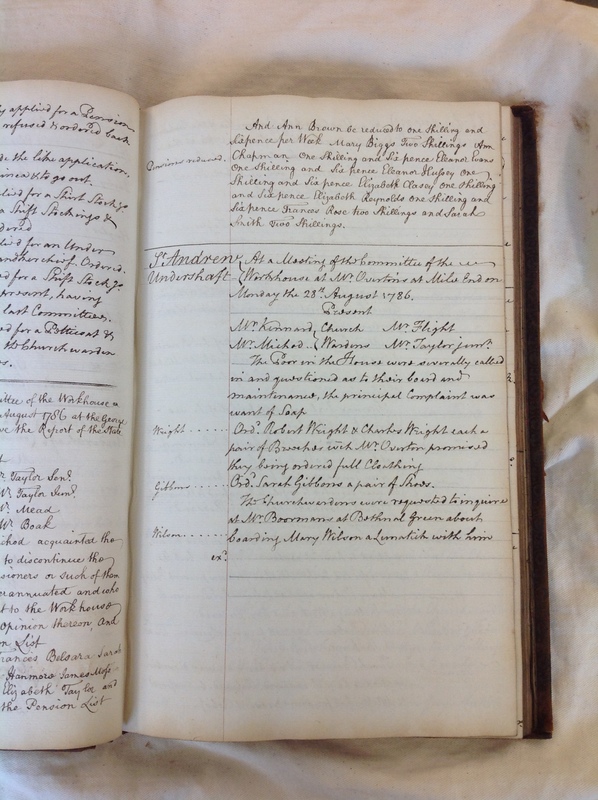 y applied for a Pension
refused & ordered back
de the like application.
to go out.
lied for a Shirt Stock.gs
a Shift Stockings &
dered
lied for an Under
andkerchief. Ordered.
d for a Shift Stock.gs
present, having
last Committee.
ed for a Petticoat &
the Churchwarden
s.
ittee of the Workhouse
August 1786 at the George
ve the Report of the State
r. Taylor Sen.r
Mr. Taylor Jun.r
Mr. Mead
Mr. Boak
ichod acquainted the
to discontinue the
sioners or such of them
erannuated and who
t to the Workhouse
Opinion thereon, And
n List
rances Belsara Sarah
Hanmore James Moss
Elizabeth Taylor and
the Pension List
And Ann Brown be reduced to one Shilling and
Sixpence per Week Mary Biggs Two Shillings Ann
Pensions reduced. Chapman One Shilling and Six pence Eleanor Evans
One Shilling and Six pence Eleanor Hussey One
Shilling and Six pence Elizabeth Classey One Shilling
and Six pence Elizabeth Reynolds one Shilling and
Six pence Frances Rose two Shillings and Sarah
Smith Two Shillings.
St. Andrew Undershaft
At a Meeting of the Committee of the
Workhouse at Mr. Overtons at Mile End on
Monday the 28th. August 1786.
Present
Mr. Kinnard Church Mr. Flight
Mr. Michod Wardens Mr. Taylor jun.r
The Poor in the House were severally called
in and questioned as to their board and
maintenance, the principal Complaint was
want of Soap
Wright ...... Ord.d Robert Wright & Charles Wright each a
pair of Breeches wch. Mr. Overton promised
they being ordered full Cloathing
Gibbins ..... Ord.d Sarah Gibbons a pair of Shoes.
The Churchwardens were requested to inquire
at Mr. Boormans at Bethnal Green about
Wilson ...... boarding Mary Wilson a Lunatick with him
ex.d